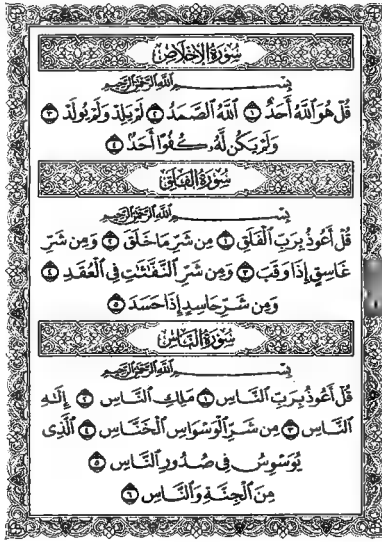 سُورَةُ الإِخْلَاصِ
بِسْمِ اللَّهِ الرَّحْمَٰنِ الرَّحِيمِ
قُلْ هُوَ ٱللَّهُ أَحَدٌ ١ ٱللَّهُ ٱلصَّمَدُ ٢ لَمْ يَلِدْ وَلَمْ يُولَدْ ٣
وَلَمْ يَكُن لَّهُۥ كُفُوًا أَحَدٌۢ ٤
سُورَةُ الفَلَقِ
بِسْمِ اللَّهِ الرَّحْمَٰنِ الرَّحِيمِ
قُلْ أَعُوذُ بِرَبِّ ٱلْفَلَقِ ١ مِن شَرِّ مَا خَلَقَ ٢ وَمِن شَرِّ
غَاسِقٍ إِذَا وَقَبَ ٣ وَمِن شَرِّ ٱلنَّفَّـٰثَـٰتِ فِى ٱلْعُقَدِ ٤
وَمِن شَرِّ حَاسِدٍ إِذَا حَسَدَ ٥
سُورَةُ النَّاسِ
بِسْمِ اللَّهِ الرَّحْمَٰنِ الرَّحِيمِ
قُلْ أَعُوذُ بِرَبِّ ٱلنَّاسِ ١ مَلِكِ ٱلنَّاسِ ٢ إِلَـٰهِ
ٱلنَّاسِ ٣ مِن شَرِّ ٱلْوَسْوَاسِ ٱلْخَنَّاسِ ٤ ٱلَّذِى
يُوَسْوِسُ فِى صُدُورِ ٱلنَّاسِ ٥
مِنَ ٱلْجِنَّةِ وَٱلنَّاسِ ٦